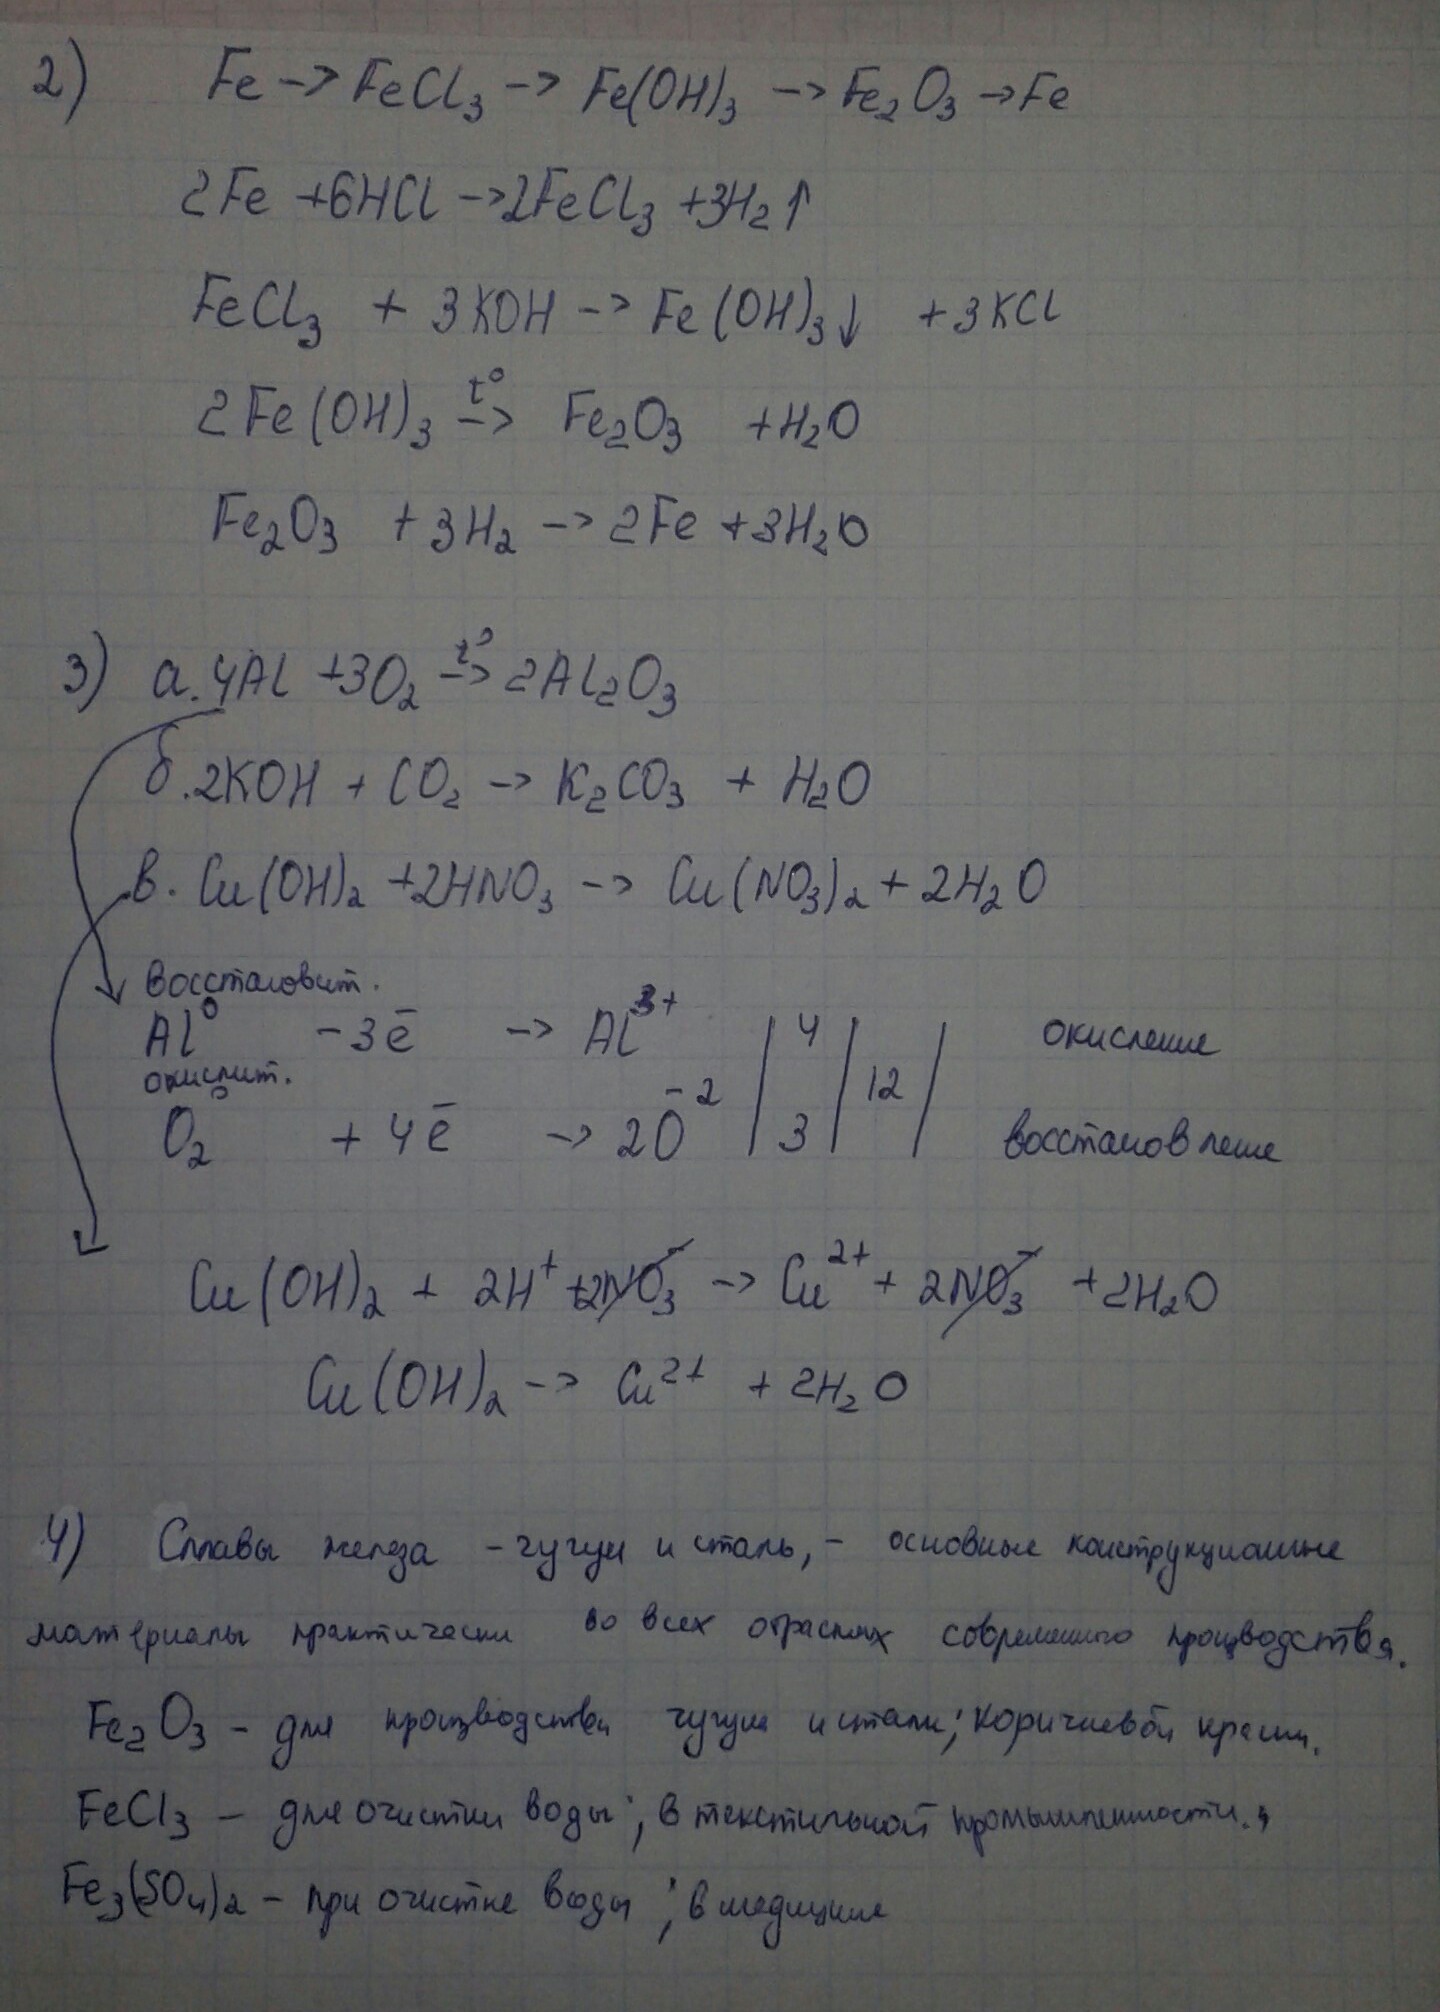 2) Fe -> FeCl₃ -> Fe(OH)₃ -> Fe₂O₃ -> Fe
2Fe +6HCl -> 2FeCl₃ +3H₂↑
FeCl₃ + 3KOH -> Fe(OH)₃↓ +3KCl
2Fe(OH)₃ t° -> Fe₂O₃ +H₂O
Fe₂O₃ +3H₂ -> 2Fe +3H₂O
3) а. 4Al +3O₂ t° -> 2Al₂O₃
б. 2KOH + CO₂ -> K₂CO₃ + H₂O
в. Cu(OH)₂ +2HNO₃ -> Cu(NO₃)₂ + 2H₂O
Восстановит.
Al⁰ -3ē -> Al³⁺ | 4 | | окисление
окислит. 12
O₂⁰ +4ē -> 2O⁻² | 3 | | восстановление
Cu(OH)₂ + 2H⁺ +2NO₃⁻ -> Cu²⁺ + 2NO₃⁻ +2H₂O
Cu(OH)₂ -> Cu²⁺ + 2H₂O
4) Сплавы железа - чугун и сталь, - основные конструкционные
материалы практически во всех отраслях современного производства.
Fe₂O₃ - для производства чугуна и стали; коричневой краски.
FeCl₃ - для очистки воды; в текстильной промышленности.;
Fe₃(SO₄)₂ - при очистке воды; в медицине